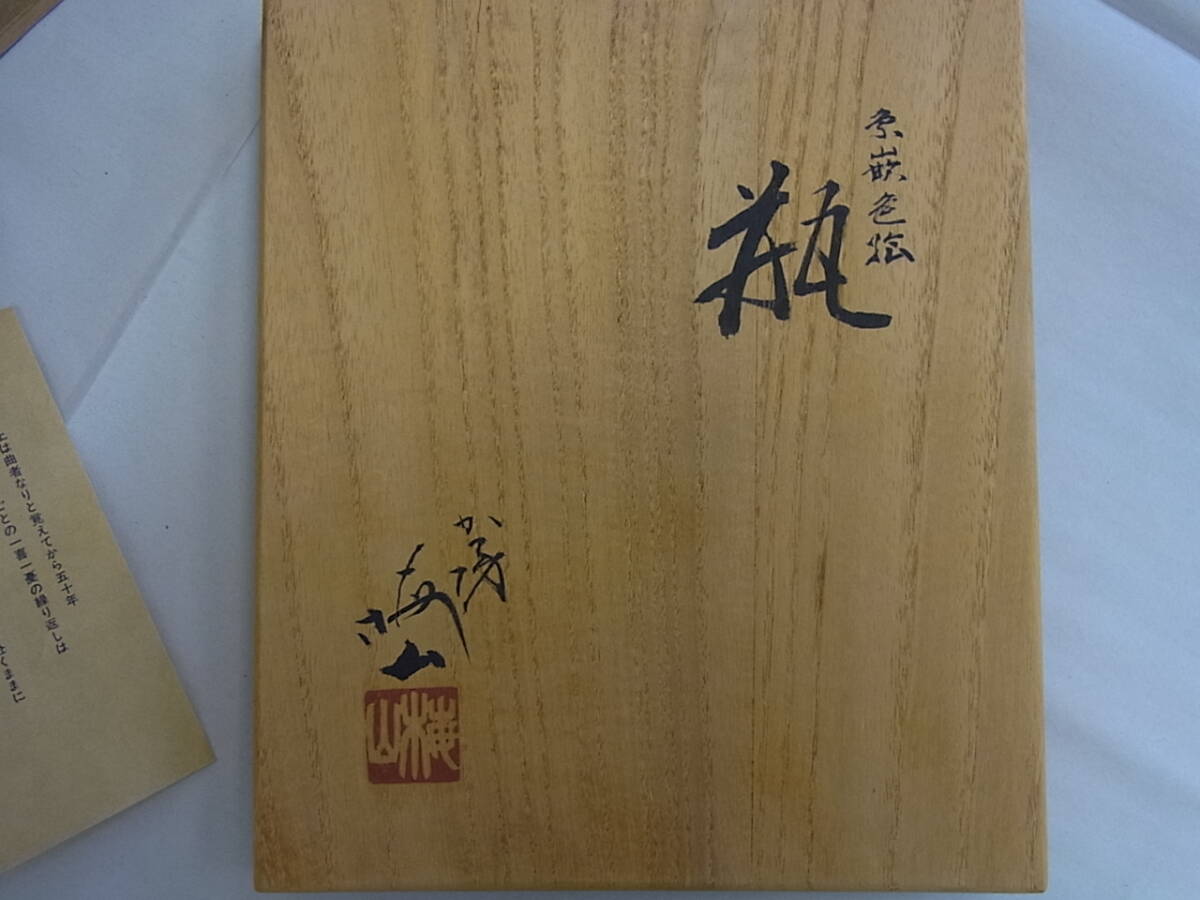 象嵌色絵
瓶
梅山
梅山
とは曲者なりと覚えてから五十年
ごとの一喜一憂の繰り返しは
くままに